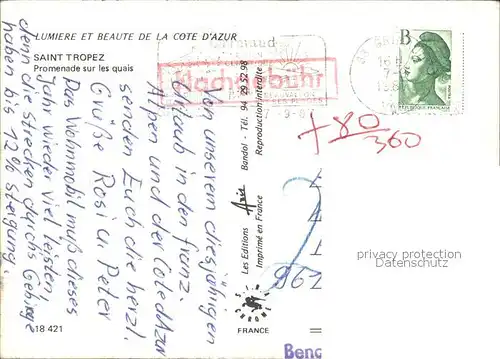 LUMIERE ET BEAUTE DE LA COTE D'AZUR
SAINT TROPEZ
Promenade sur les quais
Von unserem diesjährigen
Urlaub in den franz.
Alpen und der Cote d'Azur
senden Euch die herzl.
Grüße Rosi u. Peter
Das Wohnmobil muß dieses
Jahr wieder viel leisten,
denn die Strecken durchs Gebirge
haben bis 12% Steigung.
18 421
Les Editions Aris Bandol - Tél. 94 29 52 98
Imprimé en France Reproduction interdite
FRANCE
Nachgebühr
B
REPUBLIQUE FRANCAISE
+ 80/360
privacy protection
Datenschutz
962